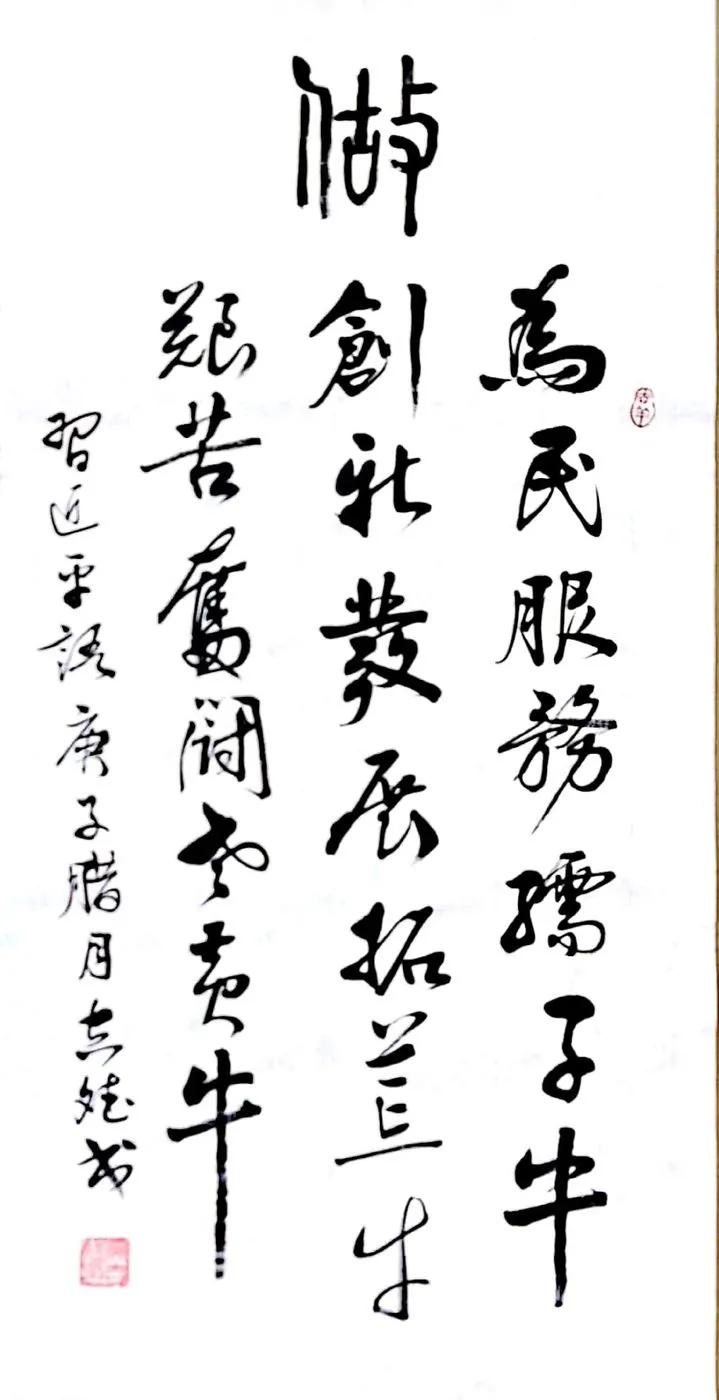 做
為民服務孺子牛
創新發展拓荒牛
艱苦奮闘老黄牛
習近平語庚子腊月志斌书